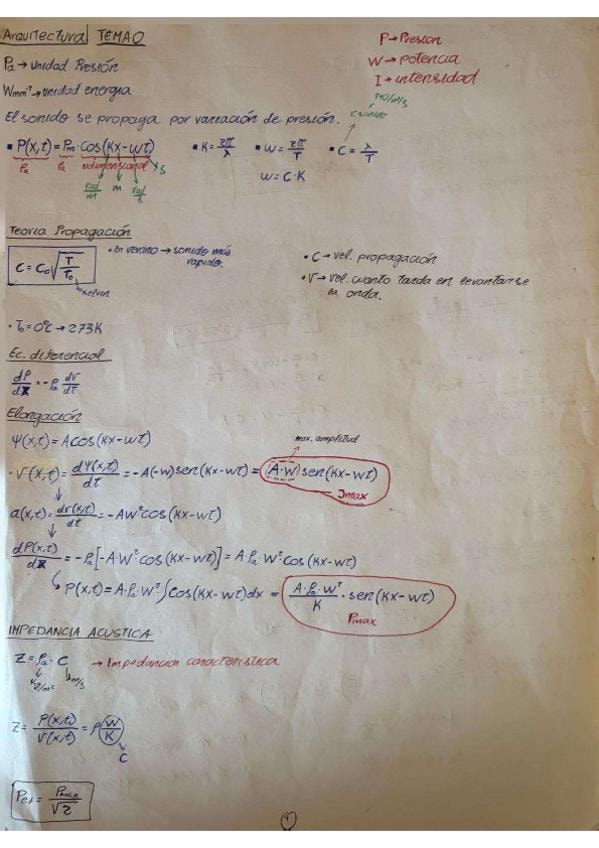 Arquitectural TEMA 0
P → Presion
W → potencia
I → intensidad
Pa → unidad Presión
Wmm⁻² → unidad energia
El sonido se propaga por variación de presión.
▪ P(x,t) = Pm · cos(Kx − wt)
Pa Pa adimensional
rad/m m rad/s s
▪ K = 2π/λ ▪ w = 2π/T ▪ C = λ/T
w = C · K
Teoria Propagación
C = C₀ √(T/T₀)
Kelvin
• En verano → sonido más rapido.
• C → vel. propagación
• V → vel. cuanto tarda en levantarse la onda.
• T₀ = 0ºC → 273K
Ec. diferencial
dP/dx = −ρa dv/dt
Elongación
Ψ(x,t) = A cos(Kx − wt)
max. amplitud
• V(x,t) = dΨ(x,t)/dt = −A(−w) sen(Kx − wt) = (A·w) sen(Kx − wt)
a(x,t) = dv(x,t)/dt = −AW² cos(Kx − wt)
dP(x,t)/dx = −ρa[−A·W² cos(Kx − wt)] = A·ρa·W² cos(Kx − wt)
↳ P(x,t) = A·ρa·W² ∫cos(Kx − wt)dx = A·ρa·W²/K · sen(Kx − wt)
Pmax
IMPEDANCIA ACUSTICA
Z = ρa · C → Impedancia caracteristica
m/s
Z = P(x,t)/V(x,t) = ρ W/K
C
Pef = Pmax/√2